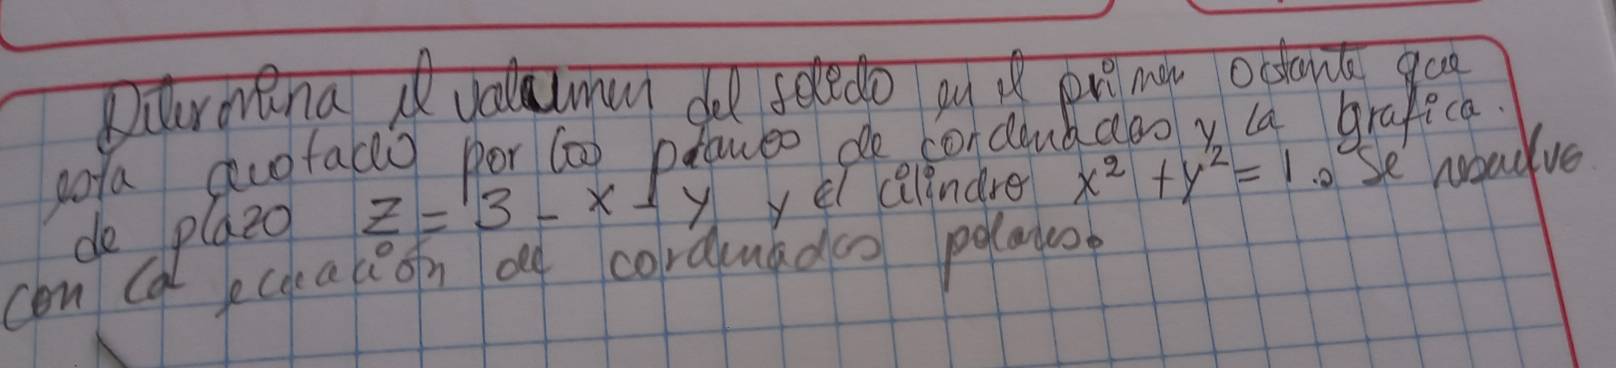 Ditermina el valaumen del soledo en el primer octante que
esta acotado por los planos de cordenadas y la grafica.
de plazo z = 3 - x - y y el cilindro x² + y² = 1. Se resuelve
con la ecuación de cordenadas polares.